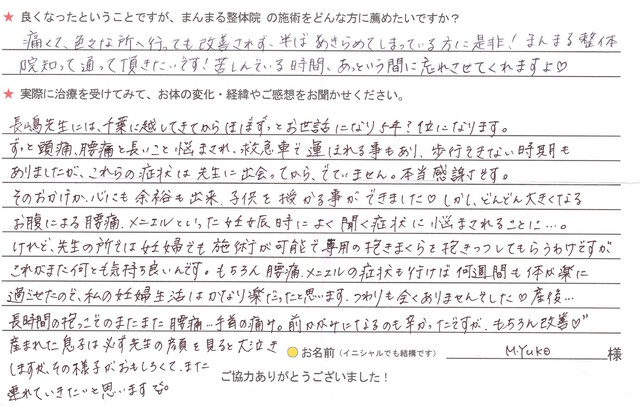 ★ 良くなったということですが、まんまる整体院 の施術をどんな方に薦めたいですか？
痛くて、色々な所へ行っても改善されず、半ばあきらめてしまっている方に是非！まんまる整体
院知って通って頂きたいです！苦しんでいる時間、あっという間に忘れさせてくれますよ♡
★ 実際に治療を受けてみて、お体の変化・経緯やご感想をお聞かせください。
長嶋先生には、千葉に越してきてからほぼずっとお世話になり5年？位になります。
ずっと頭痛、腰痛と長いこと悩まされ、救急車で運ばれる事もあり、歩行できない時期も
ありましたが、これらの症状は先生に出会ってから、でていません。本当感謝です。
そのおかげか、心にも余裕も出来、子供を授かる事ができました♡しかし、どんどん大きくなる
お腹による腰痛、メニエルといった妊娠時によく聞く症状に悩まされることに…。
けれど、先生の所では妊婦でも施術が可能で専用の抱きまくらを抱きつつしてもらうわけですが
これがまた何とも気持ち良いんです。もちろん腰痛、メニエルの症状も行けば何週間も体が楽に
過ごせたので、私の妊婦生活はかなり楽だったと思います。つわりも全くありませんでした♡産後…
長時間の抱っこでのまたまた腰痛…手首の痛み。前かがみになるのも辛かったですが、もちろん改善♡
産まれた息子は必ず先生の顔を見ると大泣き
しますが、その様子がおもしろくて、また
連れていきたいと思います
お名前（イニシャルでも結構です） M.Yuko 様
ご協力ありがとうございました！